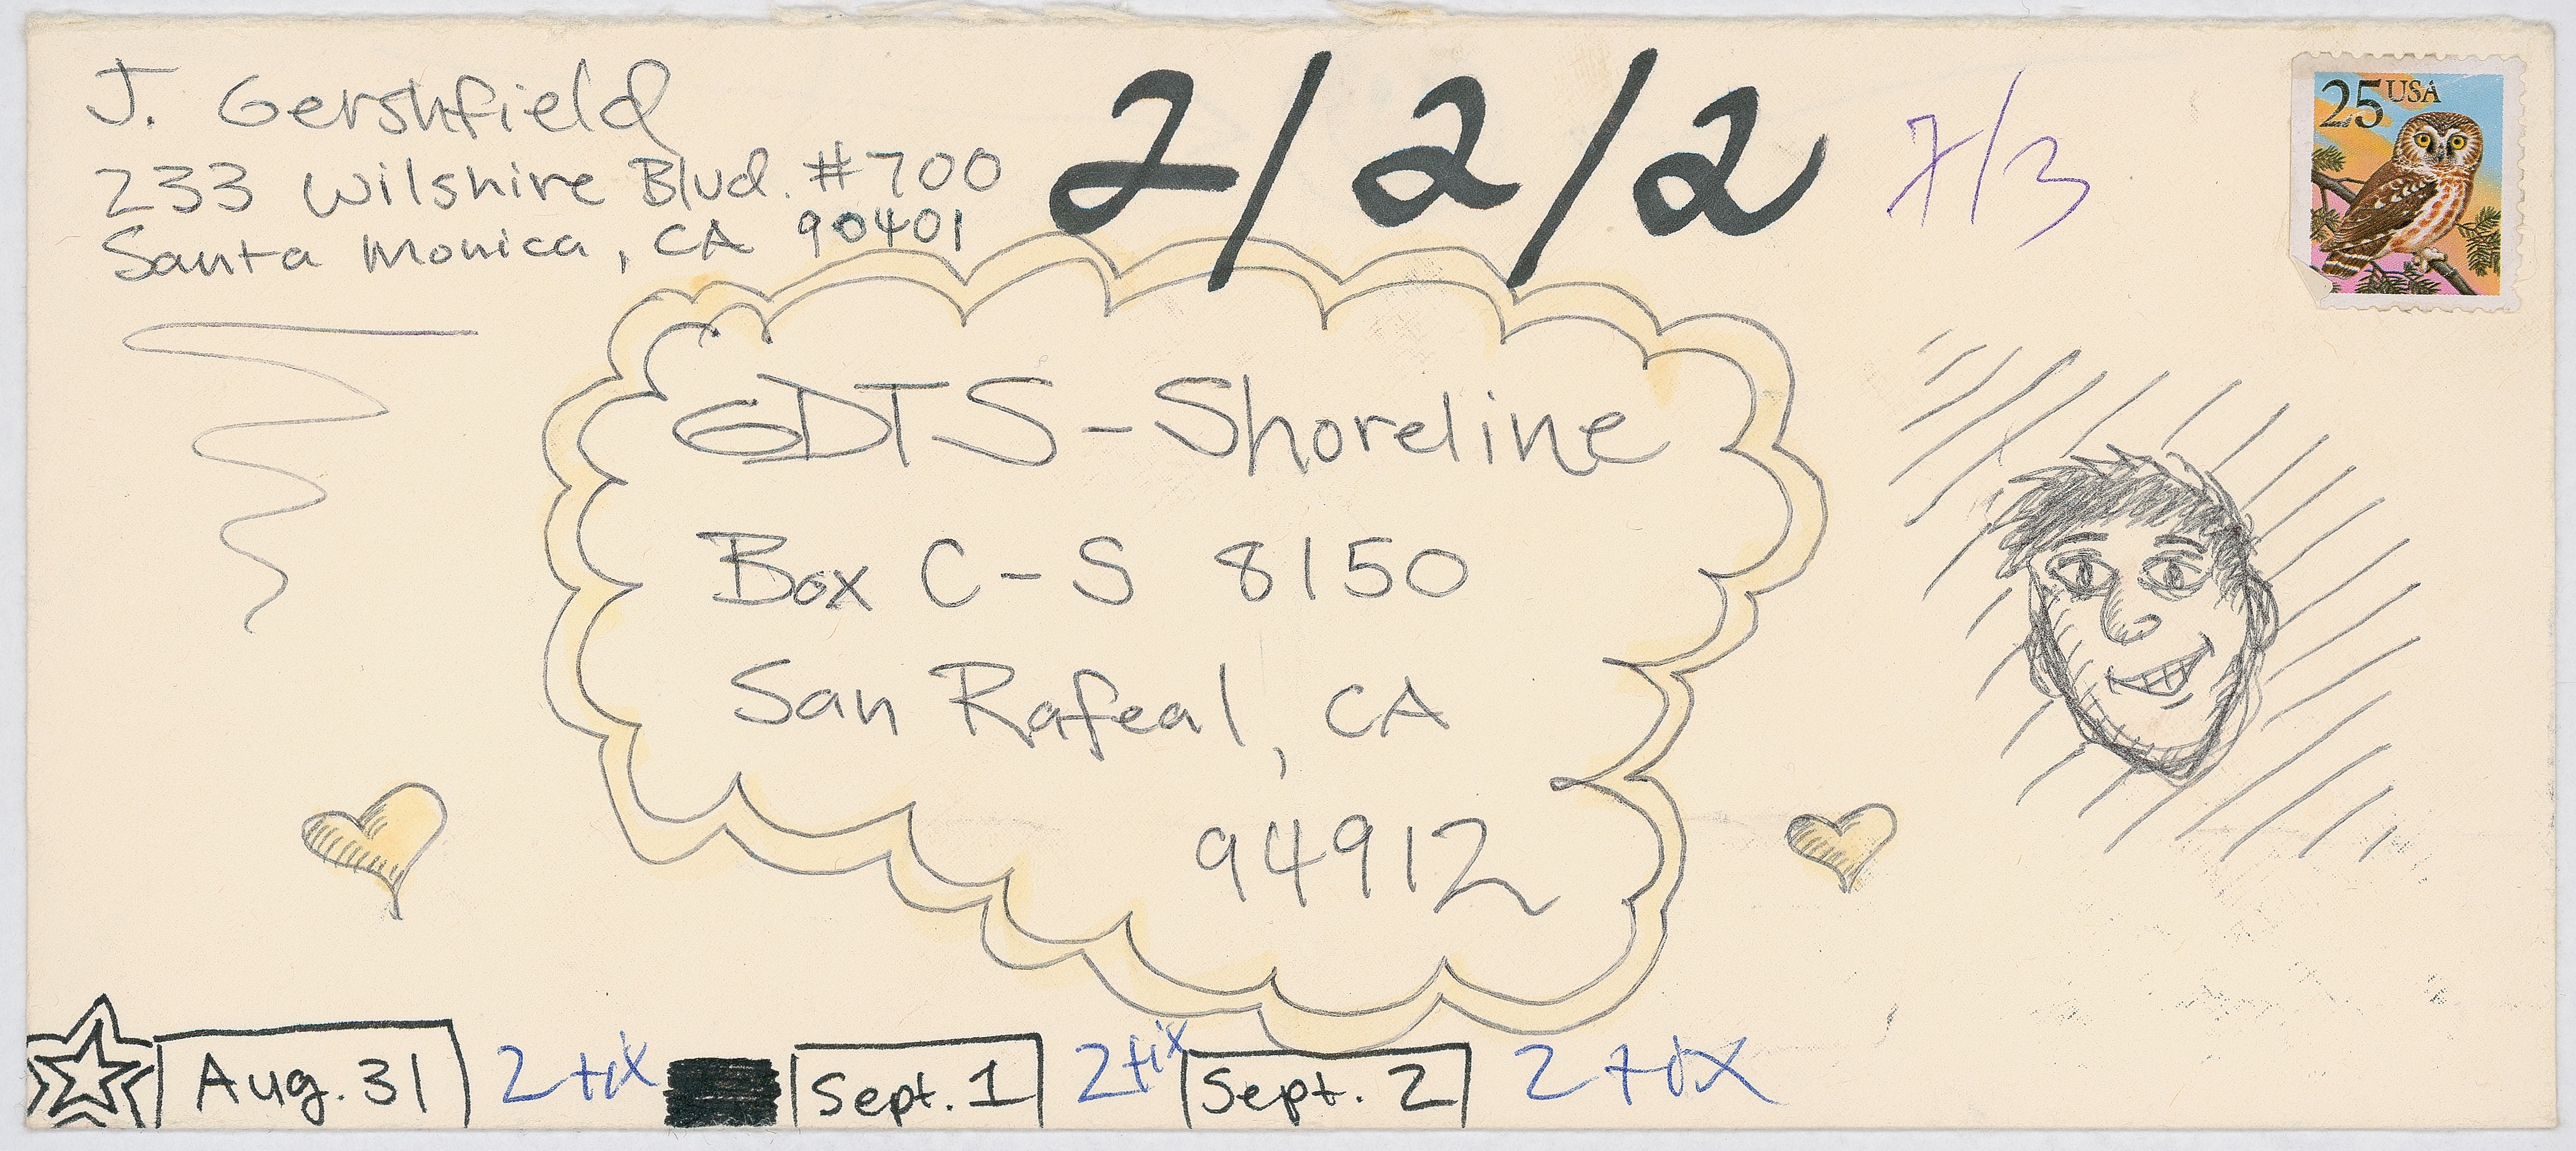 J. Gershfield
233 Wilshire Blvd. #700
Santa Monica, CA 90401
2/2/2
7/3
25 USA
GDTS-Shoreline
Box C-S 8150
San Rafeal, CA
94912
Aug. 31 2 tix Sept. 1 2 tix Sept. 2 2 tix